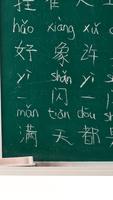 hǎo xiàng xǔ
好 象 许
yì shǎn yì
一 闪 一
mǎn tiān dōu
满 天 都